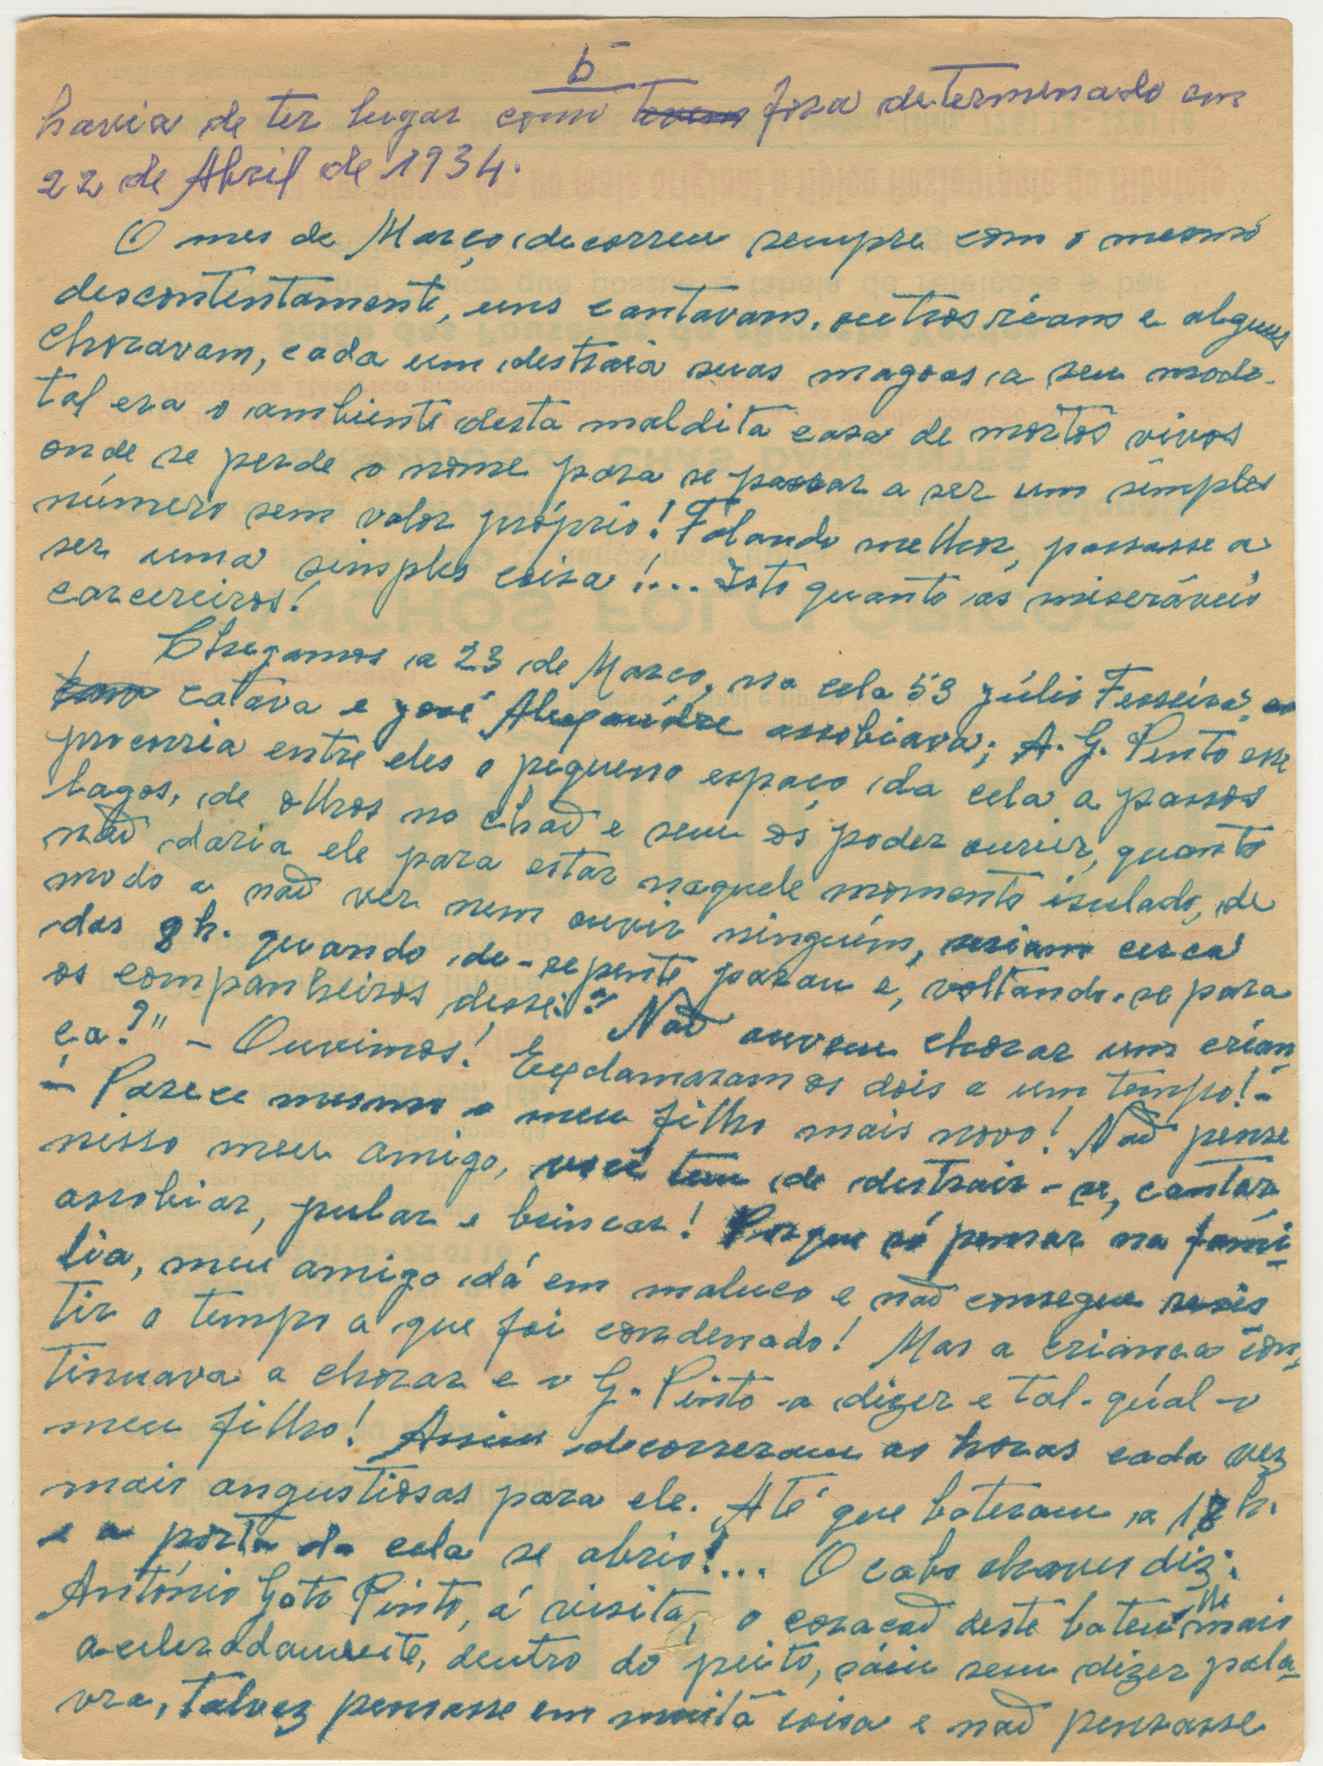 b
havia de ter lugar como fora determenado em
22 de Abril de 1934.
O mes de Março decorreu sempre com o mesmo
descontentamento, uns cantavam, outros riam e alguns
choravam, cada um destraia suas magoas a seu modo.
tal era o ambiente desta maldita casa de mortos vivos
onde se perde o nome para se passar a ser um simples
número sem valor próprio! Falando melhor, passasse a
ser uma simples coisa!... Isto quanto ás miseráveis
carcereiros!
Chegamos a 23 de Março, na cela 53 Júlio Ferreira
catava e José Alexandre assobiava; A. G. Pinto
procorria entre eles o pequeno espaço da cela a passos
lagos, de olhos no chaõ e sem os poder ouvir, quanto
naõ daria ele para estar naquele momento isulado, de
modo a naõ ver nem ouvir ninguém, seriam cerca
das 8h. quando de-repente parou e, voltando-se para
os companheiros desse: "Naõ ouvem chorar uma crian
ça?" - Ouvimos! Exclamaram os dois a um tempo! -
- Parece mesmo o meu filho mais novo! Naõ pense
nisso meu amigo, você tem de destrair-se, cantar,
assobiar, pular e brincar! Porque só pensar na famí-
lia, meu amigo dá em maluco e naõ consegue resis
tir o tempo a que foi condenado! Mas a criança con,
tinuava a chorar e o G. Pinto a dizer e tal-qúal-o
meu filho! Assim decorreram as horas cada vez
mais angustiosas para ele. Até que bateram a 18 h.
e a porta da cela se abrio!... O cabo chaves diz:
António Gato Pinto, á visita, o coraçaõ deste bateu-lhe mais
aceleradamente, dentro do peito, sáiu sem dizer pala-
vra, talvez pensasse em muita coisa e naõ pensasse